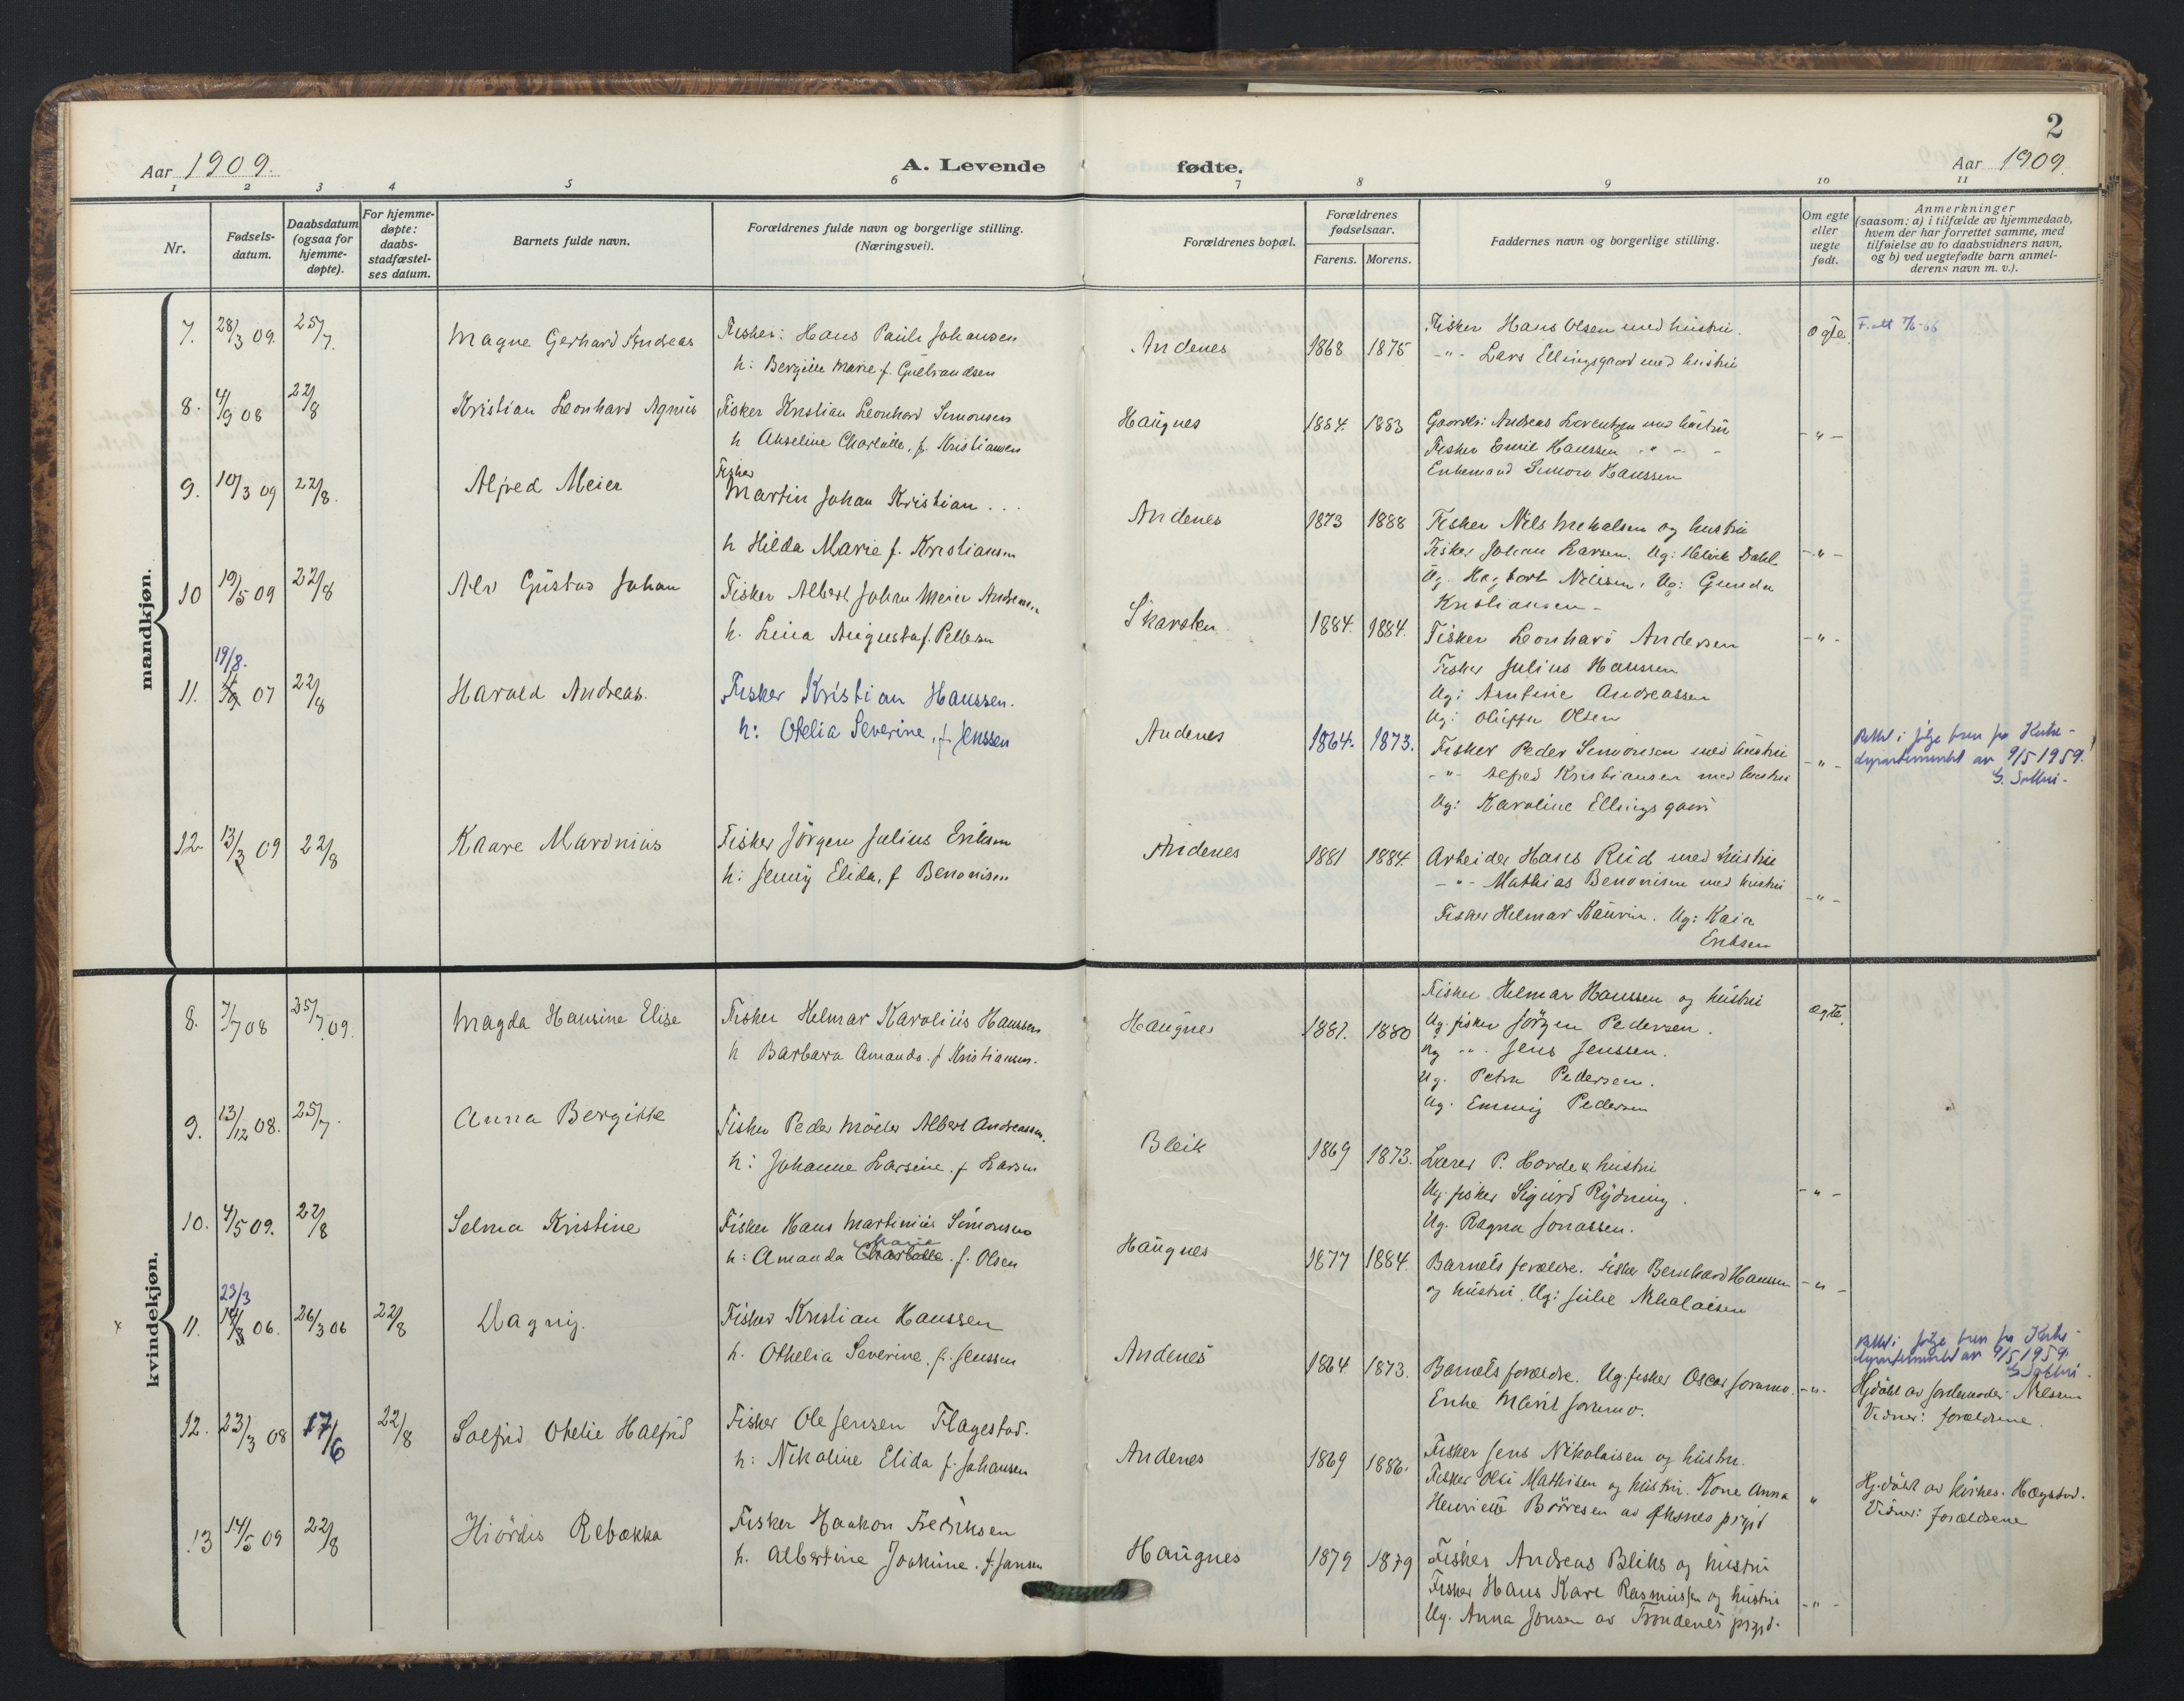 2
Aar 1909. A. Levende fødte. Aar 1909.
1 2 3 4 5 6 7 8 9 10 11
Nr.
Fødsels-
datum.
Daabsdatum
(ogsaa for
hjemme-
døpte).
For hjemme-
døpte:
daabs-
stadfæstel-
ses datum.
Barnets fulde navn.
Forældrenes fulde navn og borgerlige stilling.
(Næringsvei).
Forældrenes bopæl.
Forældrenes
fødselsaar.
Farens. Morens.
Faddernes navn og borgerlige stilling.
Om egte
eller
uegte
født.
Anmerkninger
(saasom: a) i tilfælde av hjemmedaab,
hvem der har forrettet samme, med
tilføielse av to daabsvidners navn,
og b) ved uegtefødte barn anmel-
derens navn m. v.).
mandkjøn.
7. 28/3 09. 25/7. Magne Gerhard Andreas
Fisker: Hans Pauli Johansen
h: Bergitte Marie f. Gulbrandsen
Andenes 1868 1875
Fisker Hans Olsen med hustru.
-"- Lars Ellingsgaard med hustru
ogte.
F. att 7/6-66
8. 4/9 08 22/8 Kristian Leonhard Agnus
Fisker Kristian Leonhard Simonsen
h Akseline Charlotte, f. Kristiansen
Haugnes 1884. 1883
Gaardbr: Andreas Lorentzen med hustru
Fisker Emil Hanssen " - -
Enkemand Simon Hanssen
-"-
9. 10/3 09 22/8. Alfred Meier
Fisker
Martin Johan Kristian . . .
h Hilda Marie f. Kristiansen
Andenes 1873 1888
Fisker Nils Mikalsen og hustru
Fisker Johan Larsen. Ug: Dahl
Ug. Hagbart Nilsen, Ug: Gunda
Kristiansen -
-"-
10 19/5 09 22/8 Alv Gustav Johan
Fisker Albert Johan Meier Andersen
h. Lina Augusta f. Pettersen
Skarsten 1884. 1884.
Fisker Leonhard Andersen
Fisker Julius Hanssen
Ug: Arntine Andreassen
Ug: Oluffa Olsen
-"-
19/8.
11. 07 22/8 Harald Andreas.
Fisker Kristian Hanssen.
h: Otelia Severine, f. Jenssen
Andenes 1864. 1873.
Fisker Peder Simonsen med hustru
-"- Alfred Kristiansen med hustru
Ug: Karoline Ellingsgaard
-"-
Rettet i følge brev fra Kirke-
departementet av 9/5 1959.
12. 13/3 09 22/8 Kaare Mardnius
Fisker Jörgen Julius Eriksen
h: Jenny Elida, f Benonisen
Andenes 1881 1884.
Arbeider Hans Rud med hustru
-"- Mathias Benonisen med hustru
Fisker Helmar Kaurin. Ug: Kaia
Eriksen
-"-
kvindekjøn.
8. 7/7 08 25/7 09. Magda Hansine Elise
Fisker Helmar Karolius Hanssen
h Barbara Amanda. f Kristiansen.
Haugnes 1881. 1880
Fisker Helmar Hanssen og hustru
Ug. fisker Jörgen Pedersen.
Ug -"- Jens Jenssen.
Ug. Petra Pedersen.
Ug. Emmy Pedersen
egte.
9. 13/12 08. 25/7. Anna Bergitte
Fisker Peder Möller Albert Andreassen.
h: Johanne Larsine. f Larsen
Bleik 1869 1873.
Lærer P. Horde & hustru
Ug. fisker Sigurd Rydning.
Ug. Ragna Jonassen.
-"-
10. 4/5 09. 22/8 Selma Kristine
Fisker Hans Martinius Simonsen
Marie
h: Amanda Charlotte. f. Olsen
Haugnes 1877 1884.
Barnets forældre. Fisker Bernhard Hanssen
og hustru. Ug: Julie Nikolaisen
-"-
23/3
x 11. 06. 26/3 06 22/8 Dagny.
Fisker Kristian Hanssen
h. Othelia Severine. f. Jenssen
Andenes 1864 1873.
Barnets forældre. Ug. fisker Oscar Joramo.
Enke Marit Joramo.
-"-
Rettet i følge brev fra Kirke-
departementet av 9/5 1959.
Hjdöbt av Jordemoder: Nilssen
Vidner: forældrene.
12. 23/3 08 17/6 22/8 Solfrid Otelie Halfrid
Fisker Ole Jensen Flagestad.
h: Nikoline Elida f. Johansen
Andenes 1869 1886.
Fisker Jens Nikolaisen og hustru.
Fisker Olai Mathisen og hustru. Kone Anna
Henriette Börresen av Øksnes prgjd
"
Hj.döbt av kirkes. Hægstad.
Vidner: forældrene
13 14/5 09 22/8 Hjördis Rebækka
Fisker Haakon Fredriksen
h. Albertine Joakime. f. Jansen
Haugnes 1879 1879
Fisker Andreas Bliks og hustru
Fisker Hans Karl Rasmussen og hustru
Ug. Anna Jonsen av Trondenes prgjd.
-"-